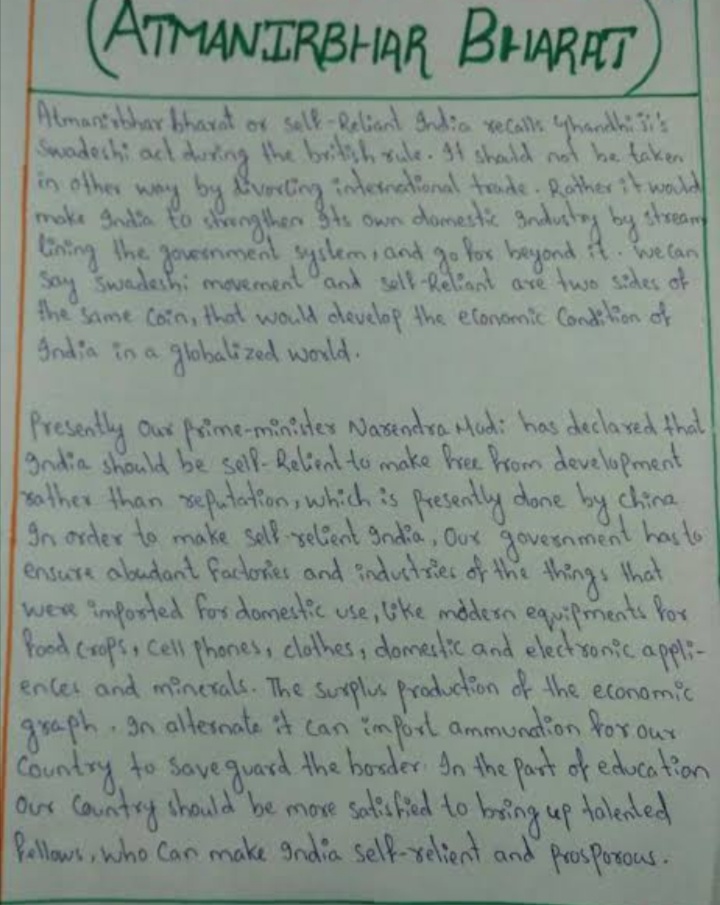 (ATMANIRBHAR BHARAT)
Atmanirbhar bharat or self-Reliant India recalls Ghandhi Ji's
Swadeshi act during the british rule. It should not be taken
in other way by divorcing international trade. Rather it would
make India to strengthen Its own domestic Industry by stream
lining the government system, and go for beyond it. we can
say Swadeshi movement and self-Reliant are two sides of
the same Coin, that would develop the economic Condition of
India in a globalized world.
Presently Our prime-minister Narendra Modi has declared that
India should be self-Relient to make free from development
rather than reputation, which is presently done by china
In order to make self-relient India, Our government has to
ensure abudant factories and industries of the things that
were imported for domestic use, like modern equipments for
food crops, Cell phones, clothes, domestic and electronic appli-
ences and minerals. The surplus production of the economic
graph. In alternate it can import ammunation for our
Country to saveguard the border. In the part of education
Our Country should be more satisfied to bring up talented
fellows, who Can make India self-relient and prosporous.